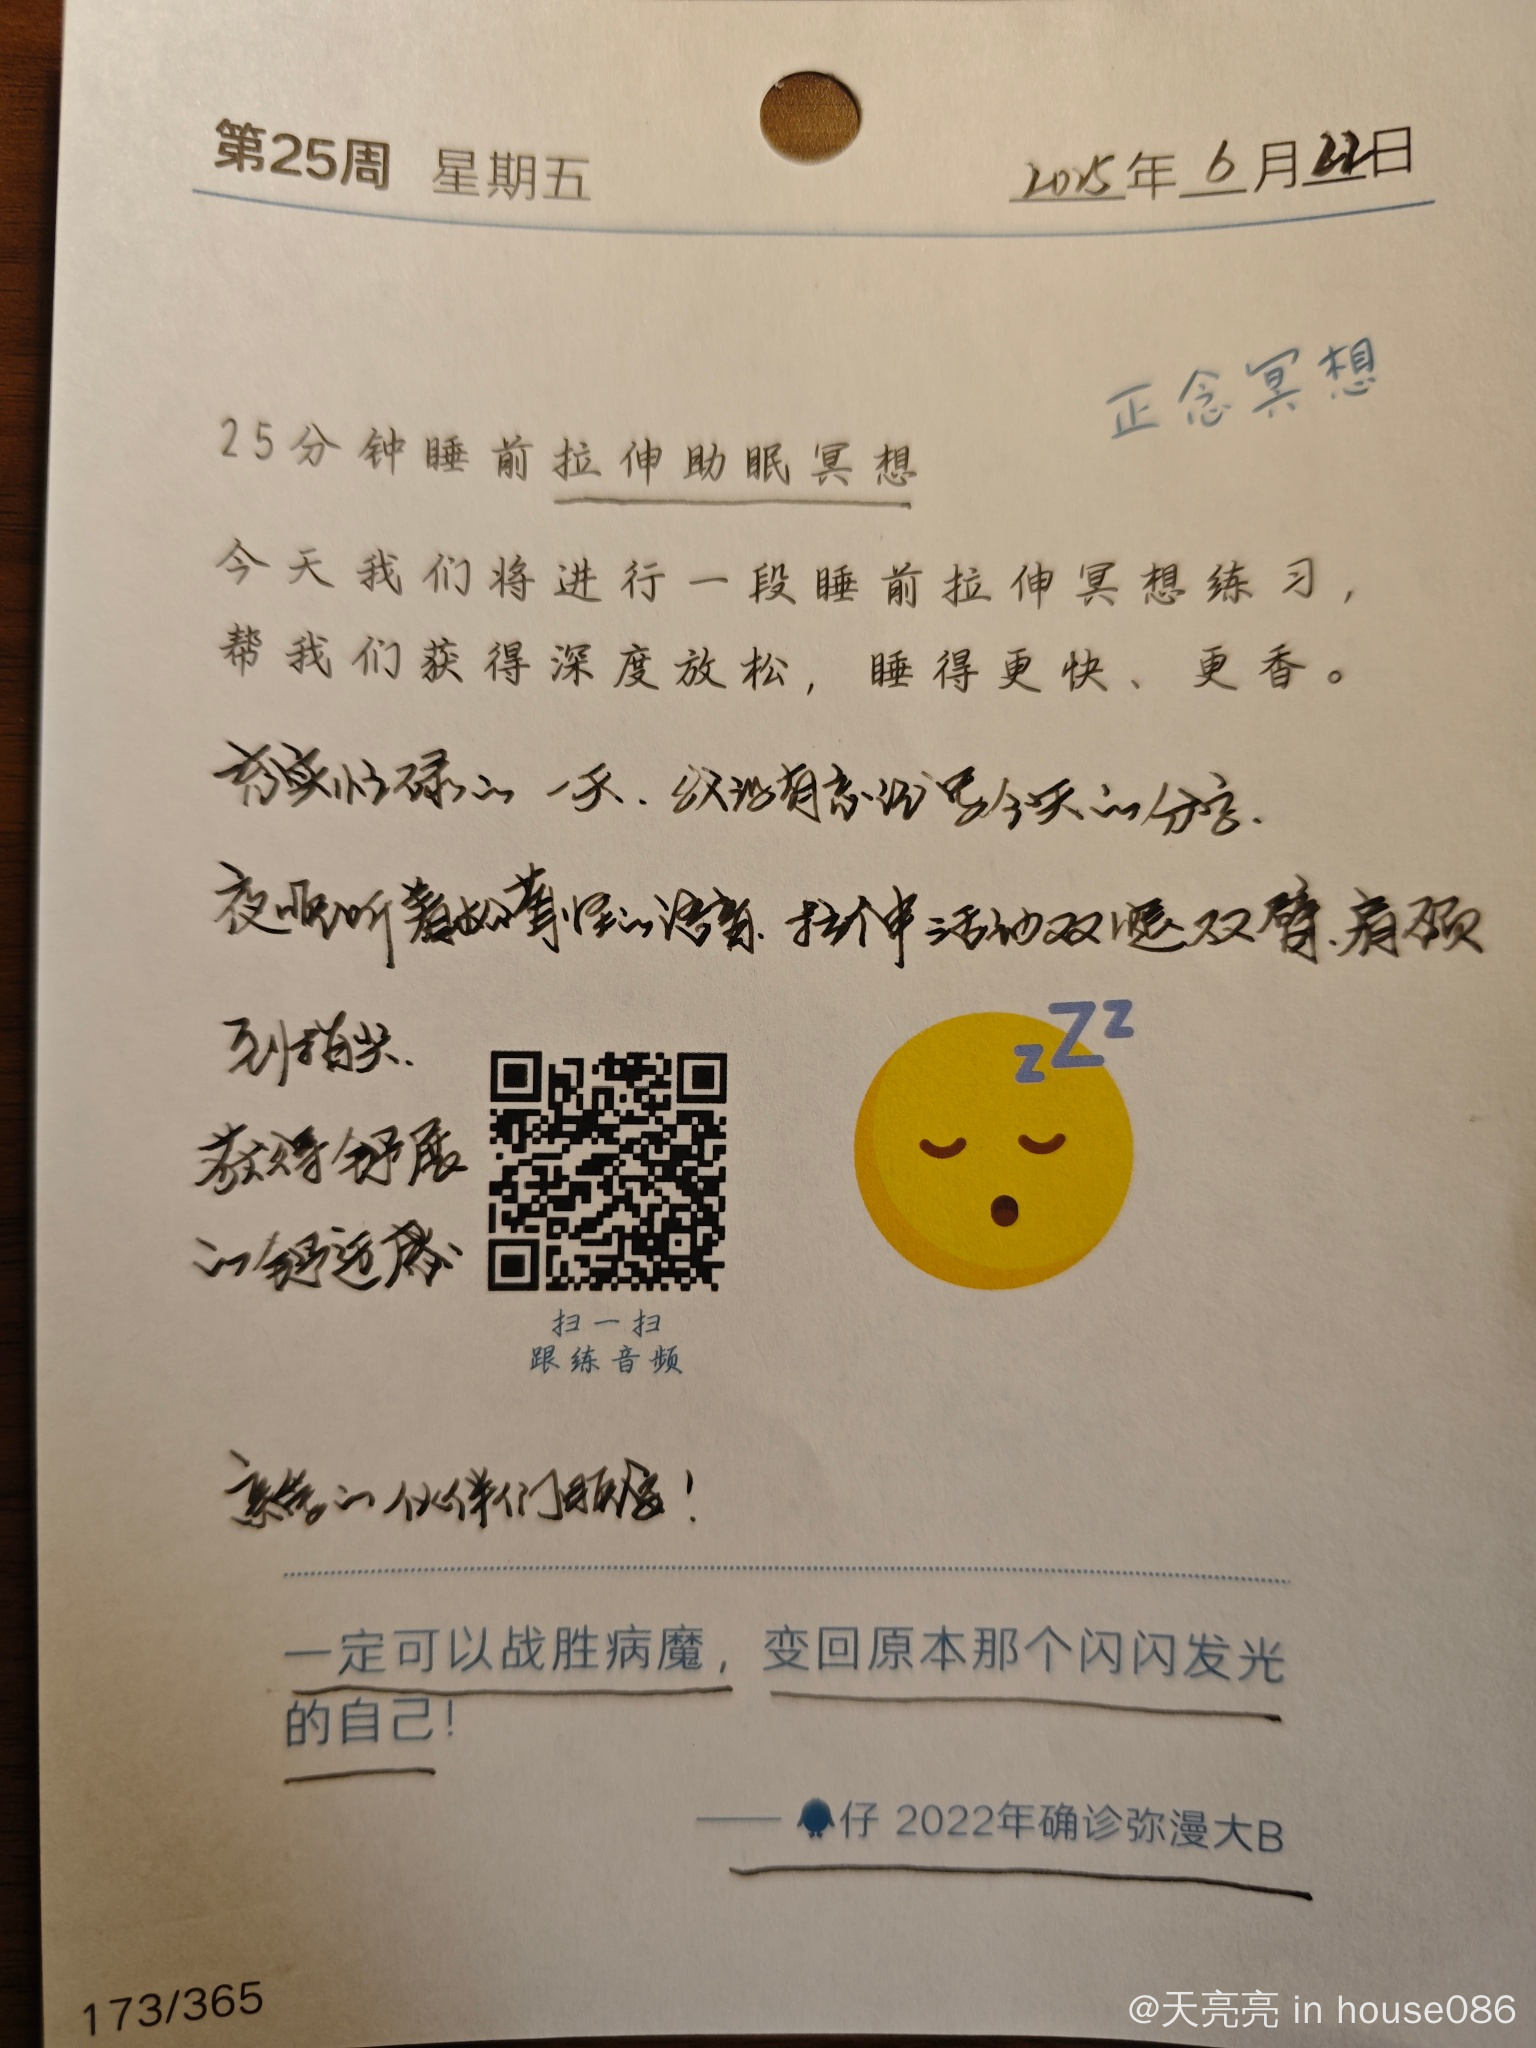 第25周 星期五
2025年6月22日
正念冥想
25分钟睡前拉伸助眠冥想
今天我们将进行一段睡前拉伸冥想练习，
帮我们获得深度放松，睡得更快、更香。
充实忙碌的一天.没有忘记今天的分享.
夜晚听着的语音.拉伸活动双腿双臂.肩颈
到指尖.
获得舒展
的舒适感
扫一扫
跟练音频
亲爱的伙伴们晚安!
一定可以战胜病魔，变回原本那个闪闪发光
的自己！
——仔 2022年确诊弥漫大B
173/365
@天亮亮 in house086